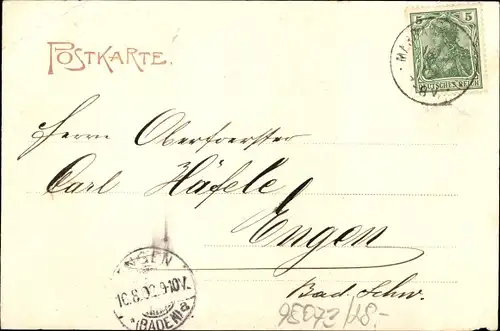 POSTKARTE.
5 5
DEUTSCHES REICH
MA
8 V.
Herrn Oberfoerster
Carl Häfele
Engen
Bad. Schw.
ENGEN
10.8.02. 9-10V.
*(BADEN)a
98073/18-